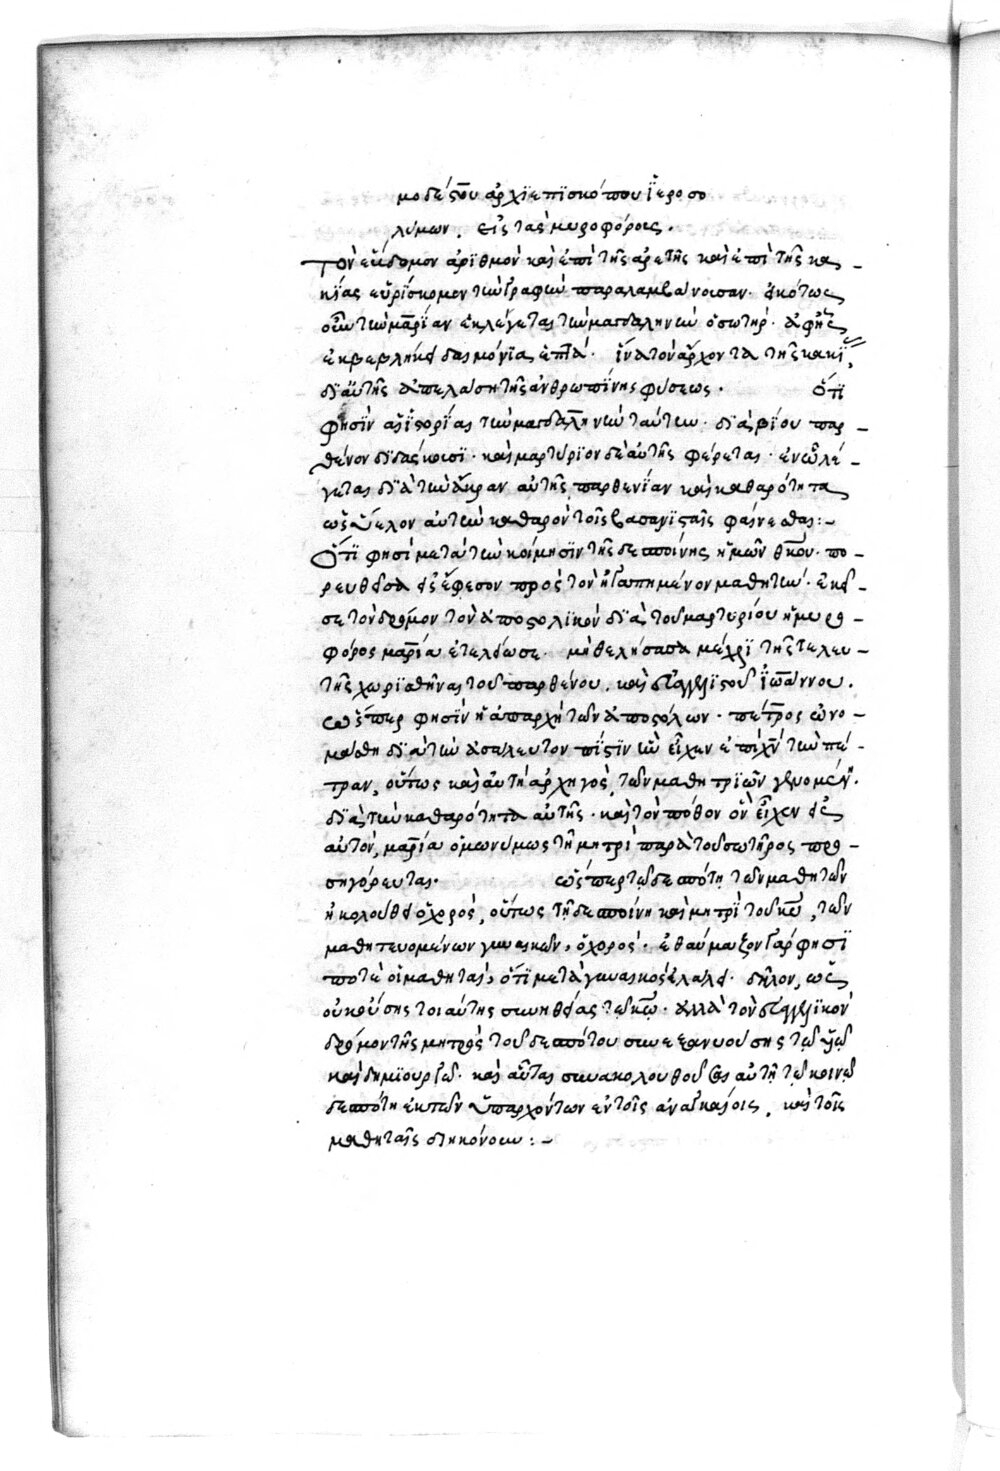 μοδέστου ἀρχϊεπϊσκόπου ἱ̈εροσο
λύμων. εἰς τὰς μυροφόρους.
Τὸν ἕβδομον ἀρϊθμὸν καὶ ἐπὶ τῆς ἀρετῆς καὶ ἐπὶ τῆς κα –
κίας εὑρΐσκομεν τὴν γραφὴν παραλαμβάνουσαν. εἰκότως
οὖν τὴν μαρίαν ἐκλέγεται τὴν μαγδαληνὴν ὁ σωτήρ. ἀφ' ἧς
ἐκβεβλήκει δαιμόνϊα ἑπτά. ἵνα τὸν ἄρχοντα τῆς κακί
δϊ' αὐτῆς ἀπελάση τῆς ἀνθρωπΐνης φύσεως. Ὅτϊ
φησὶν αἱ ἱστορίαι τὴν μαγδαληνὴν ταύτην. δϊὰ βίου παρ –
θένον δϊδάσκουσϊ. καὶ μαρτύρϊον δὲ αὐτῆς φέρεται. ἐν ὧ λέ –
γεται δϊὰ τὴν ἄκραν αὐτῆς παρθενίαν καὶ καθαρότητα
ὡς ὕελον αὐτὴν καθαρὸν τοῖς βασανϊσταῖς φαίνεσθαι: –
Ὅτϊ φησὶ μετὰ τὴν κοίμησϊν τῆς δεσποίνης ἡμῶν θκου. πο –
ρευθεῖσα εἰς ἔφεσον πρὸς τὸν ἠγαπημένον μαθητήν. ἐκεῖ
σε τὸν δρόμον τὸν ἀποστολϊκὸν δϊὰ τοῦ μαρτυρίου ἡ μυρο –
φόρος μαρία ἐτελείωσε. μὴ θελήσασα μέχρϊ τῆς τελευ –
τῆς χωρϊσθῆναι τοῦ παρθένου, καὶ εὐαγγελϊστοῦ ἰ̈ωάννου.
ὥσπερ φησὶν ἡ ἀπαρχὴ τῶν ἀποστόλων. πέτρος ὠνο –
μάσθη δϊὰ τὴν ἀσάλευτον πίστϊν ἣν εἶχεν ἐπὶ χν τὴν πέ –
τραν, οὕτως καὶ αὐτὴ ἀρχηγὸς, τῶν μαθητρϊῶν γενομένη.
δϊὰ τὴν καθαρότητα αὐτῆς. καὶ τὸν πόθον ὃν εἶχεν εἰς
αὐτὸν, μαρία ὁμωνύμως τῆ μητρὶ παρὰ τοῦ σωτῆρος προ –
σηγόρευται. ὥσπερ τῷ δεσπότῃ τῶν μαθητῶν
ἠκολούθει ὁ χορὸς, οὕτως τῇ δεσποίνη καὶ μητρϊ τοῦ κυ, τῶν
μαθητευομένων γυναικῶν, ὁ χορός. ἐθαύμαζον γάρ φησϊ
ποτὲ οἱ μαθηταὶ, ὅτϊ μετὰ γυναικὸς ἐλάλει. δῆλον, ὡς
οὐκ οὔσης τοιαύτης συνηθείας τῷ κω. ἀλλὰ τὸν εὐαγγελϊκὸν
δρόμον τῆς μητρὸς τοῦ δεσπότου συνεξανυούσης τῷ υἱῷ
καὶ δημϊουργῷ. καὶ αὗται συνακολουθοῦσαι αὐτῇ τῷ κοινῷ
δεσπότη ἐκ τῶν ὑπαρχόντων ἐν τοῖς ἀναγκαίοις, καὶ τοῖς
μαθηταῖς διηκόνουν: –